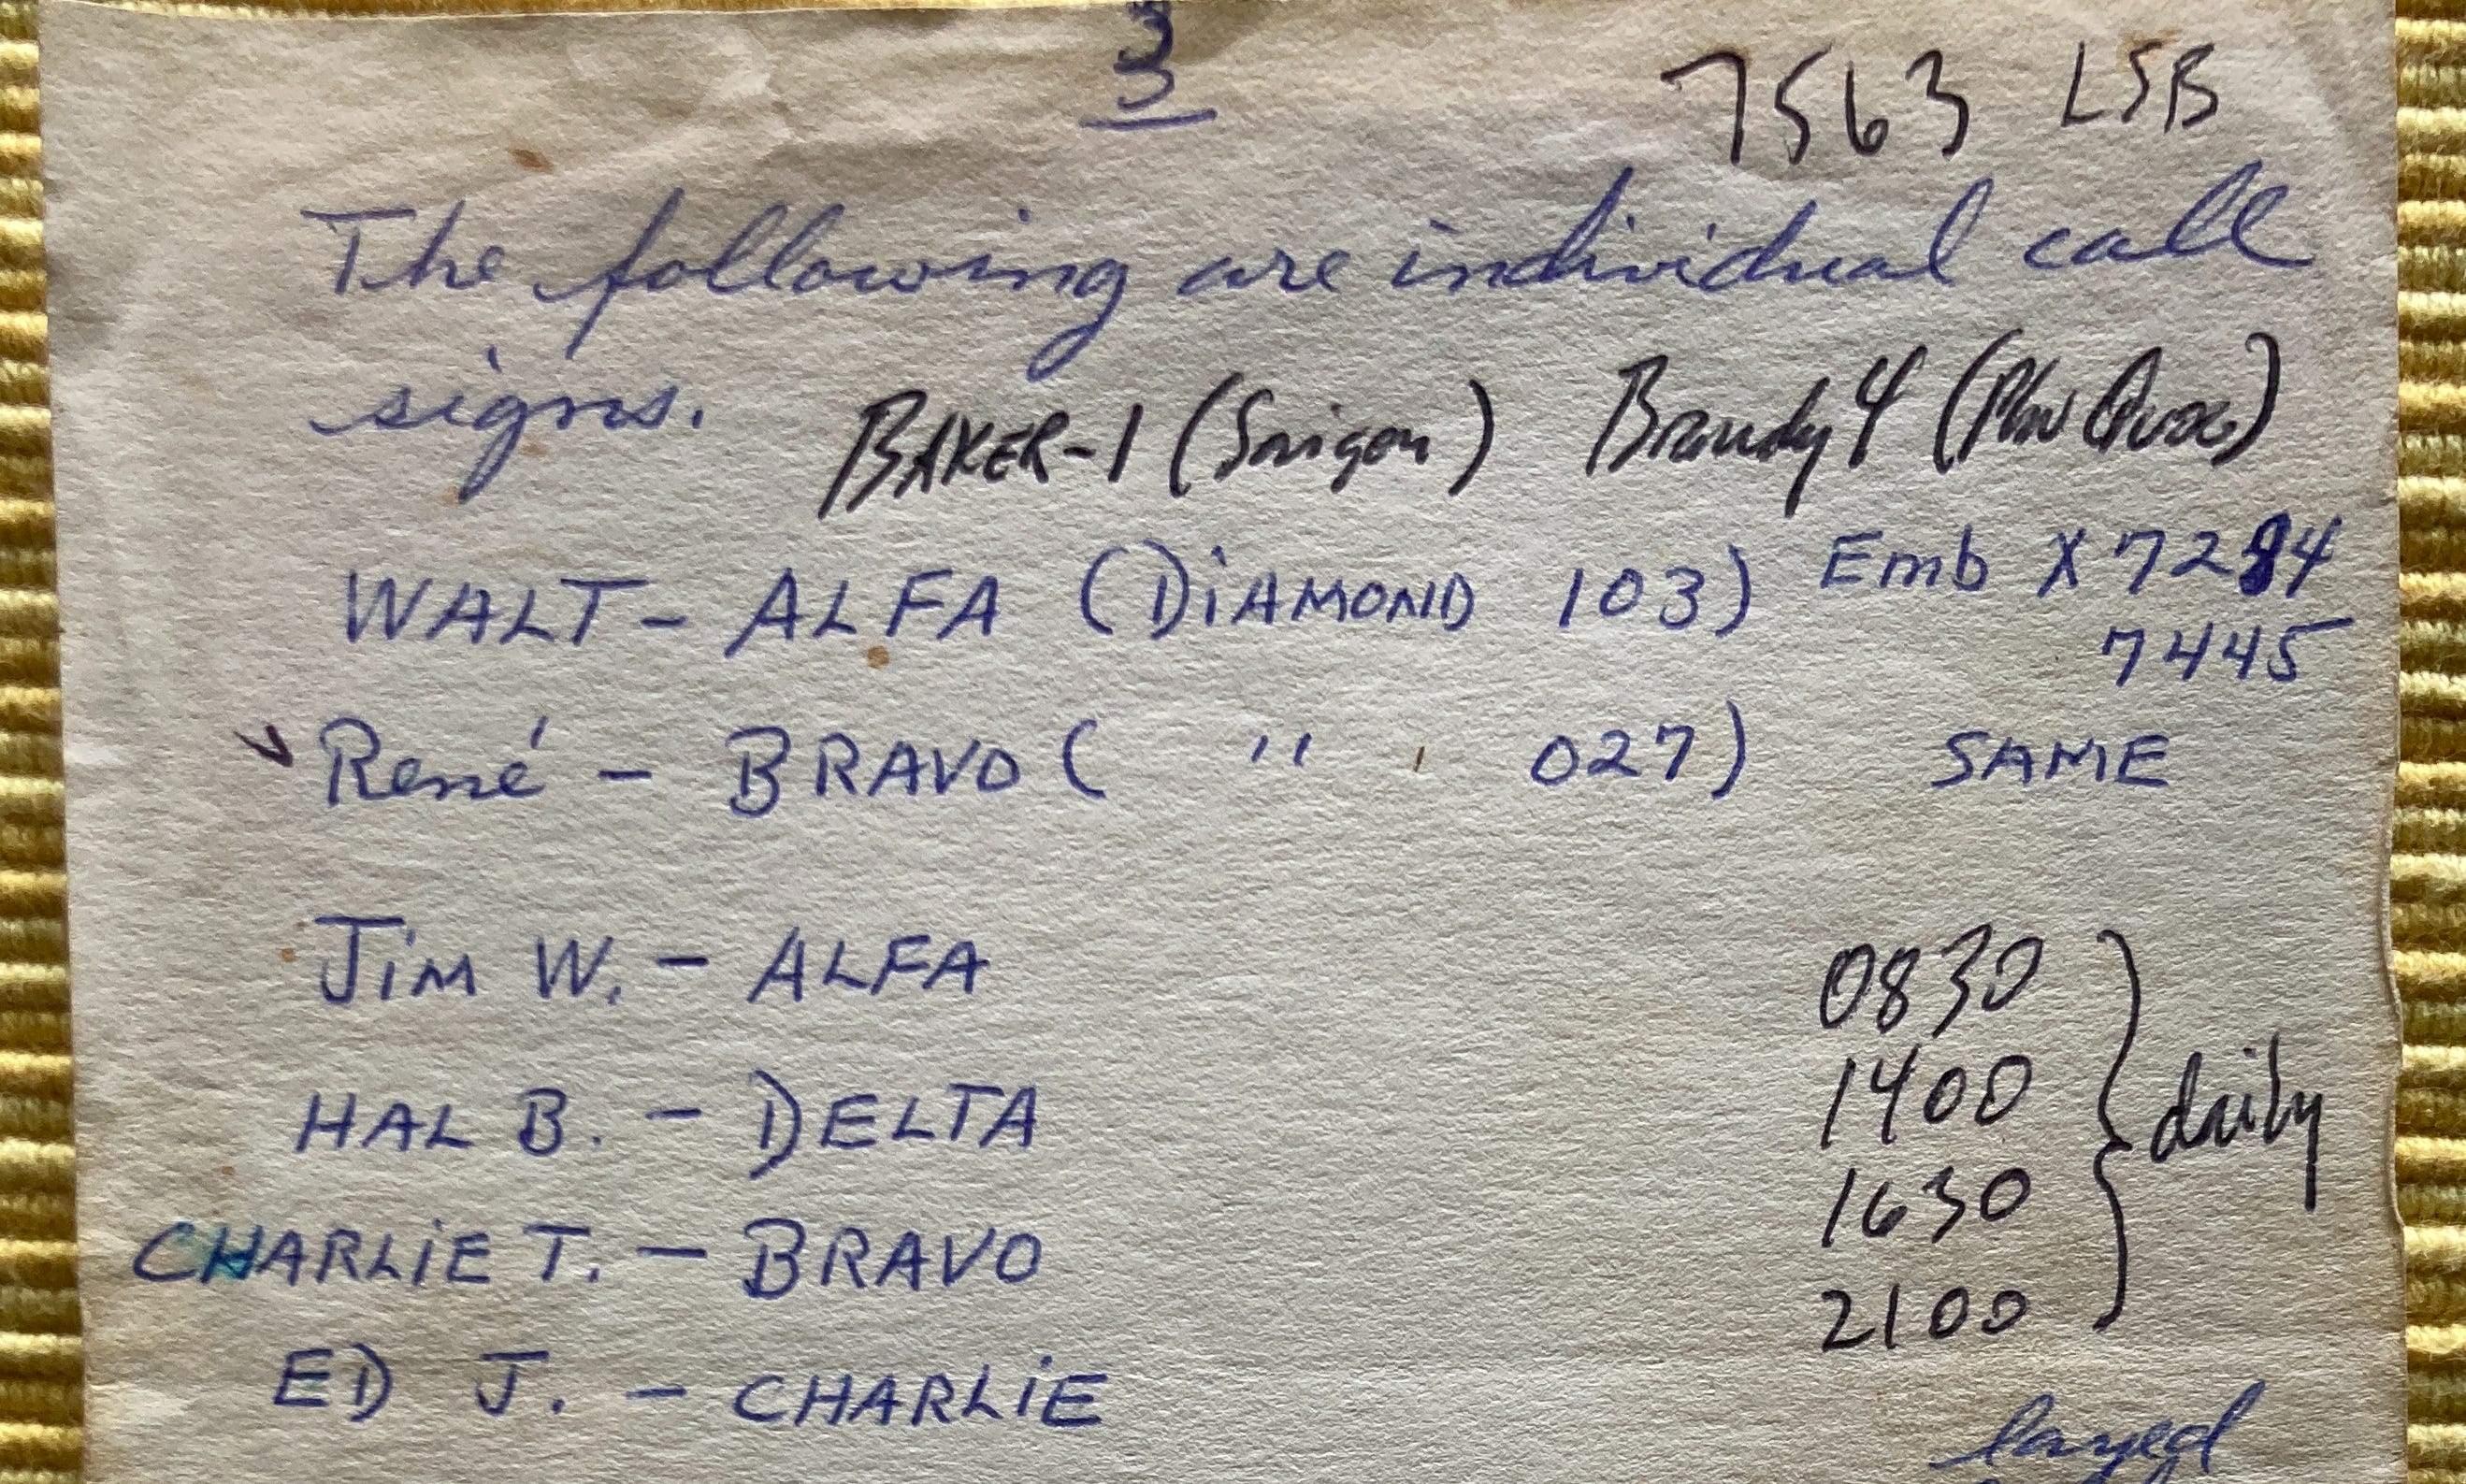 3
7563 LSB
The following are individual call
signs. BAKER-1 (Saigon) Brandy 4 (Phu Quoc)
WALT - ALFA (DIAMOND 103) Emb X 7214
7445
René - BRAVO ( " 027) SAME
JIM W. - ALFA
0830
HAL B. - DELTA
1400
daily
CHARLIE T. - BRAVO
1630
2100
ED J. - CHARLIE